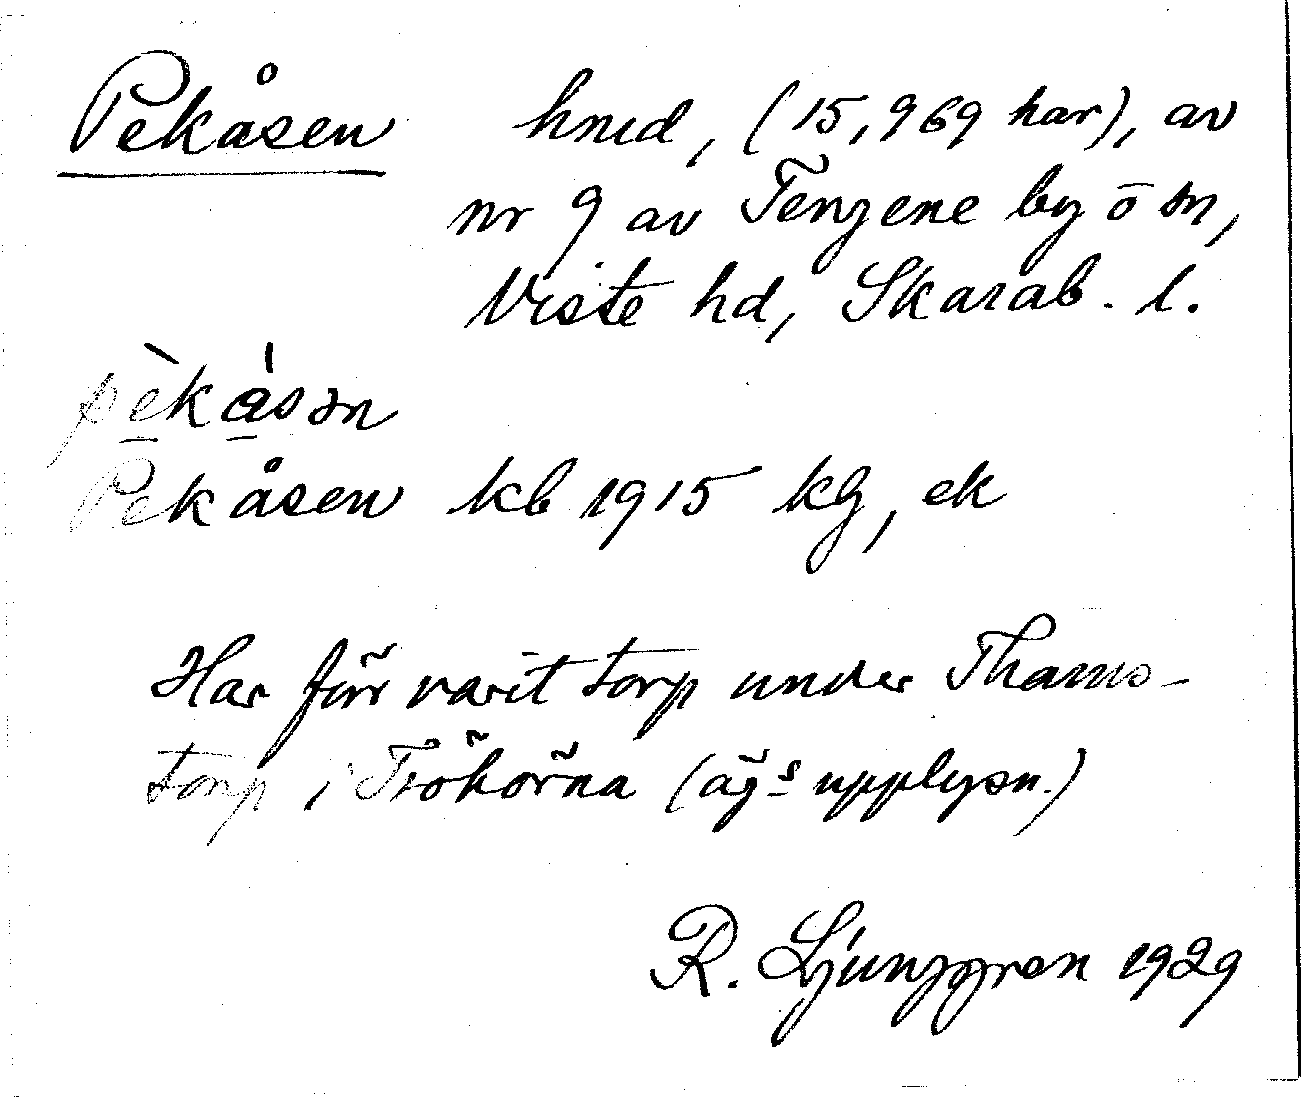 Pekåsen hmd, (15,969 har), av
nr 9 av Tengene by o sn,
Viste hd, Skarab. l.
pèkåsən
Pekåsen kb 1915 kg, ek
Har förr varit torp under Thams-
torp i Tråkörna (äg:s upplysn.)
R. Ljunggren 1929